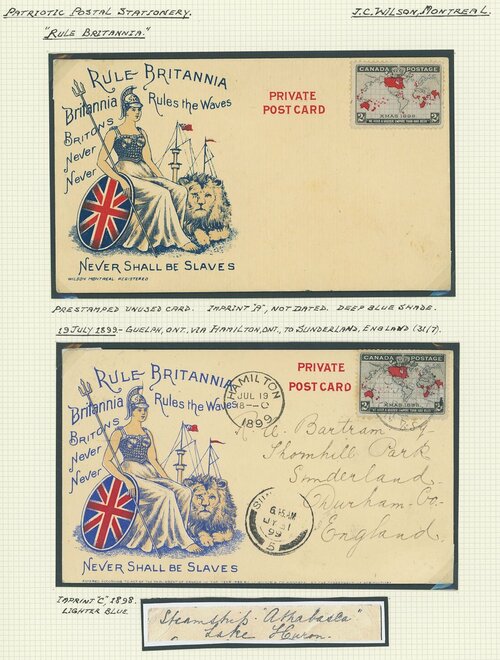 PATRIOTIC POSTAL STATIONERY.
J.C. WILSON, MONTREAL.
"RULE BRITANNIA."
RULE BRITANNIA
Britannia Rules the Waves
BRITONS
Never
Never
NEVER SHALL BE SLAVES
WILSON MONTREAL REGISTERED
PRIVATE
POST CARD
CANADA POSTAGE
XMAS 1898
2 2
"WE HOLD A VASTER EMPIRE THAN HAS BEEN"
PRESTAMPED UNUSED CARD. IMPRINT "A", NOT DATED. DEEP BLUE SHADE.
19 JULY 1899 - GUELPH, ONT. VIA HAMILTON, ONT., TO SUNDERLAND, ENGLAND (31/7).
RULE BRITANNIA
Britannia Rules the Waves
BRITONS
Never
Never
NEVER SHALL BE SLAVES
PRIVATE
POST CARD
CANADA POSTAGE
XMAS 1898
HAMILTON
JUL 19
8-0
1899
A. Bartram Esq
Thornhill Park
Sunderland
Durham Co.
England
6.15 AM
JY 31
99
5
IMPRINT "C", 1898.
LIGHTER BLUE.
Steamship "Athabasca"
Lake Huron.